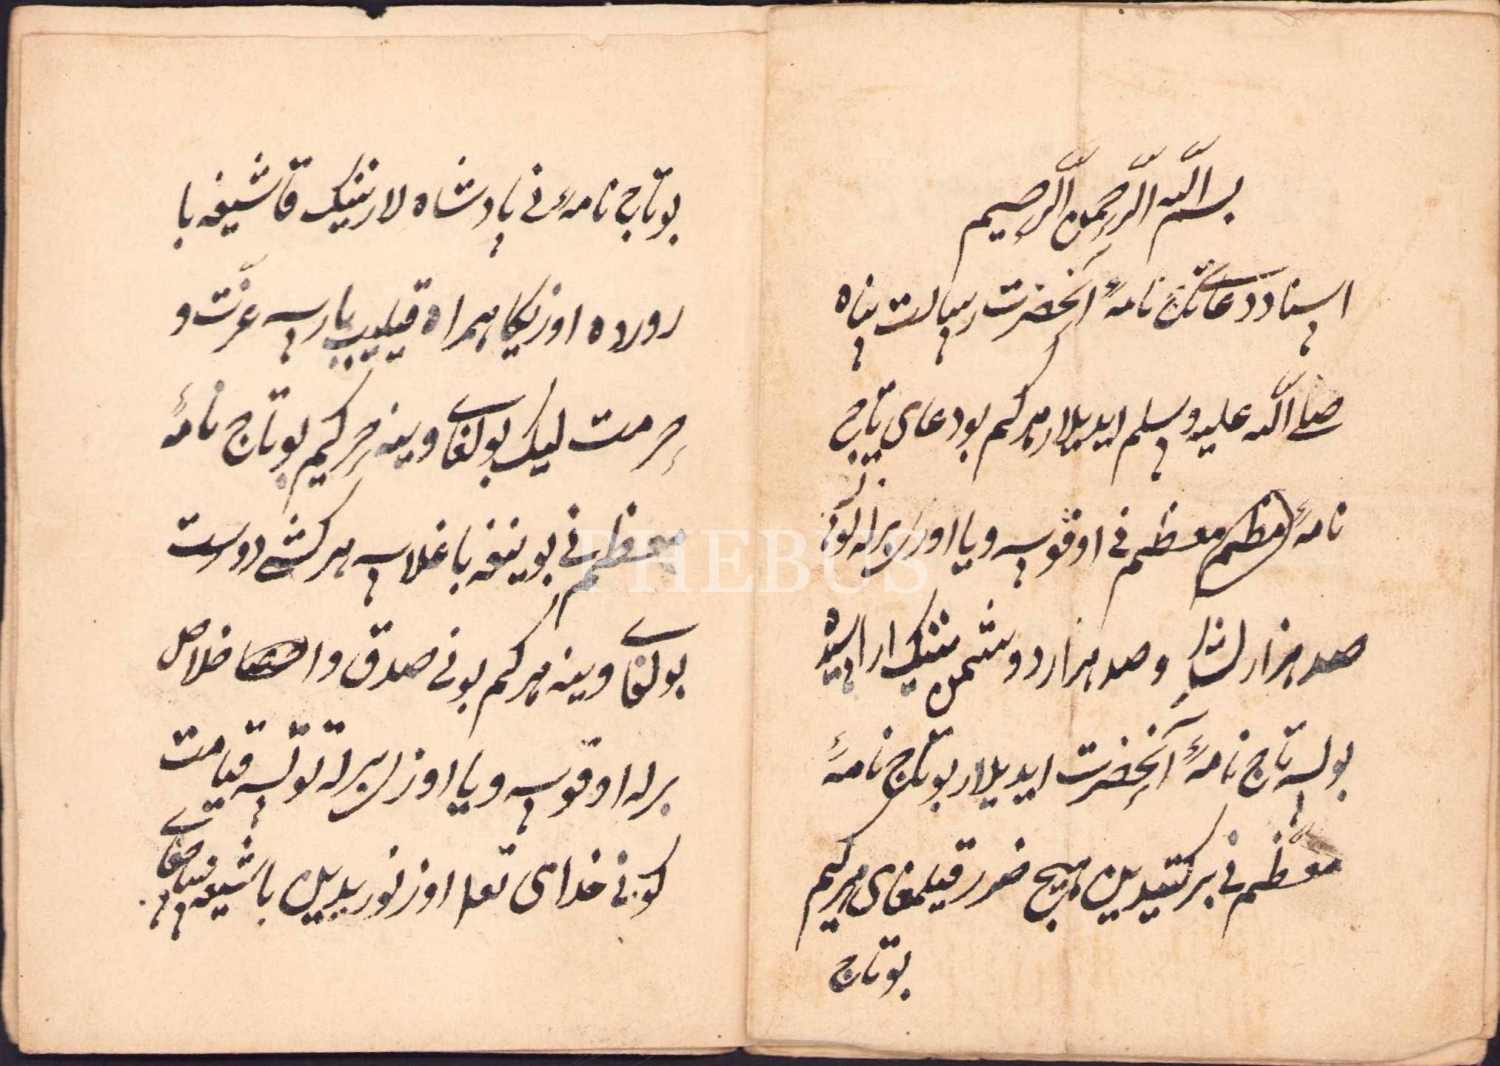 بسم الله الرحمن الرحيم
اسناد دعای تاج نامهٔ آنحضرت رسالت پناه
صلى الله عليه وسلم ايديلار هركم بو دعای تاج
نامهٔ معظم نی اوقوب و يا اوزی برله
صد هزار و صد هزار دوشمن ننيك
بولسه تاج نامهٔ آنحضرت ايديلار بو تاج نامهٔ
معظم نی بركتيدين هيچ ضرر قيلمغای هركيم
بو تاج
بو تاج نامهٔ نی پادشاه لار ننيك قاشيغه با
رورده اوزيكا همراه قيليب بارسه عزت و
حرمت ليك بولغای وينه هركيم بو تاج نامهٔ
معظم نی بوينيغه باغلاسه هر كشی دوست
بولغای وينه هركم بونی صدق و اخلاص
برله اوقوسه و يا اوزی برله توتسه قيامت
كونی خدای تعلا اوز نوريدين باشيغه
PHEBUS